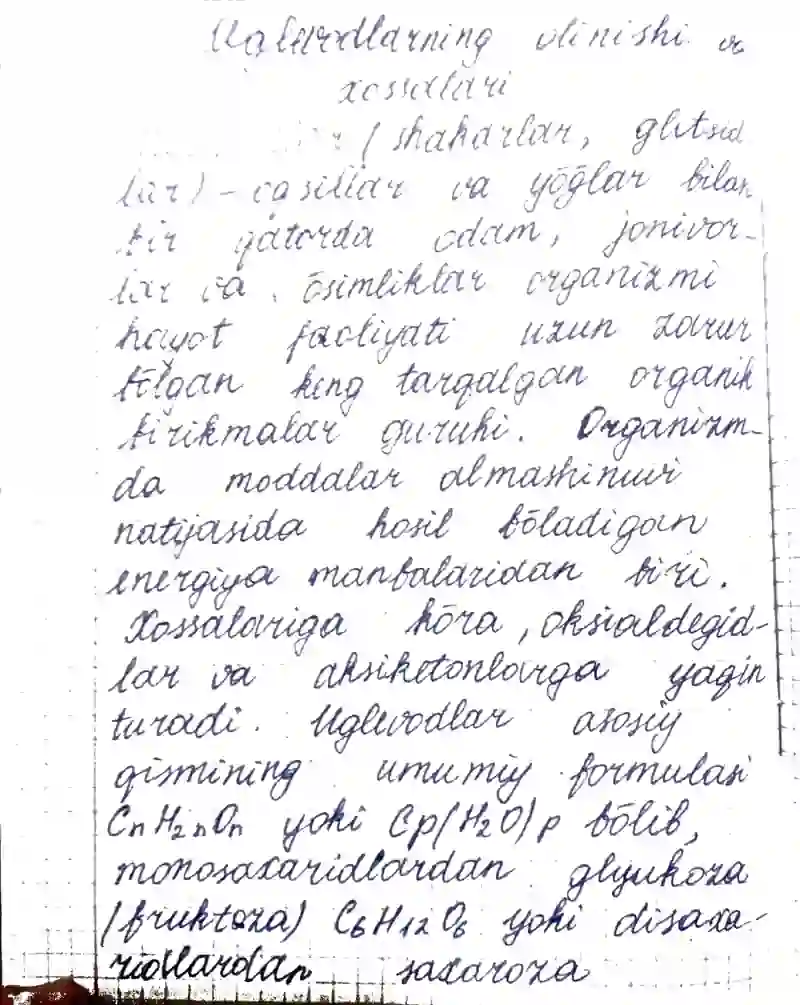 Uglevodlarning olinishi va
xossalari
(shakarlar, glitsid
lar) - oqsillar va yōğlar bilan
bir qatorda odam, jonivor-
lar va ōsimliklar organizmi
hayot faoliyati uzun zarur
bōlgan keng tarqalgan organik
birikmalar guruhi. Organizm-
da moddalar almashinuvi
natijasida hosil bōladigan
energiya manbalaridan biri.
Xossalariga kōra, oksialdegid-
lar va aksiketonlarga yaqin
turadi. Uglevodlar asosiy
qismining umumiy formulasi
CnH₂nOn yoki Cp(H₂O)p bōlib,
monosaxaridlardan glyukoza
(fruktoza) C₆H₁₂O₆ yoki disaxa-
ridlardan saxaroza